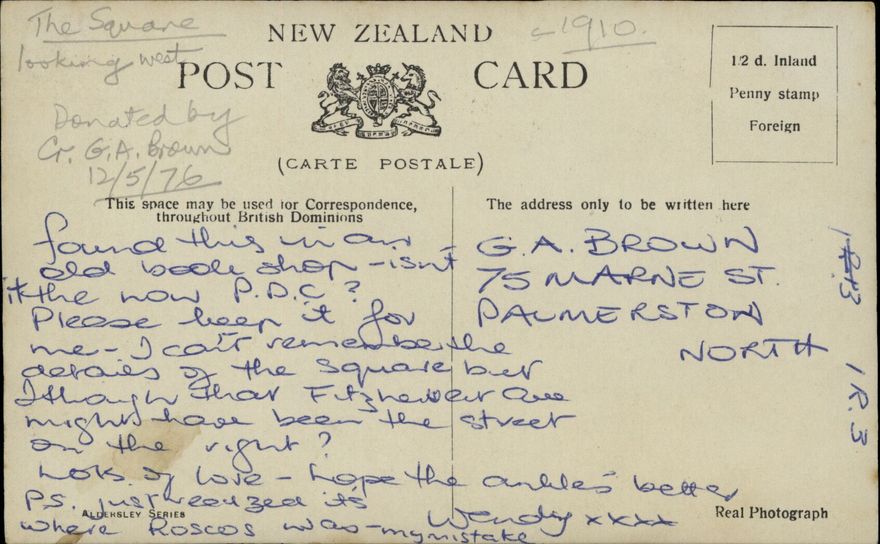 The Square
looking west
c 1910.
Donated by
Cr. G.A. Brown
12/5/76
NEW ZEALAND
POST CARD
(CARTE POSTALE)
1/2 d. Inland
Penny stamp
Foreign
This space may be used for Correspondence,
throughout British Dominions
The address only to be written here
found this in an
old book shop - isn't
it the now P.D.C?
Please keep it for
me - I can't remember the
details of the Square but
I thought that Fitzherbert Ave
might have been the street
on the right?
Lots of love - hope the ankle's better
Wendy xxxx
P.S. just realized it's
where Roscos was - my mistake
G.A. BROWN
75 MARNE ST.
PALMERSTON
NORTH
1R.3
ALDERSLEY SERIES
Real Photograph